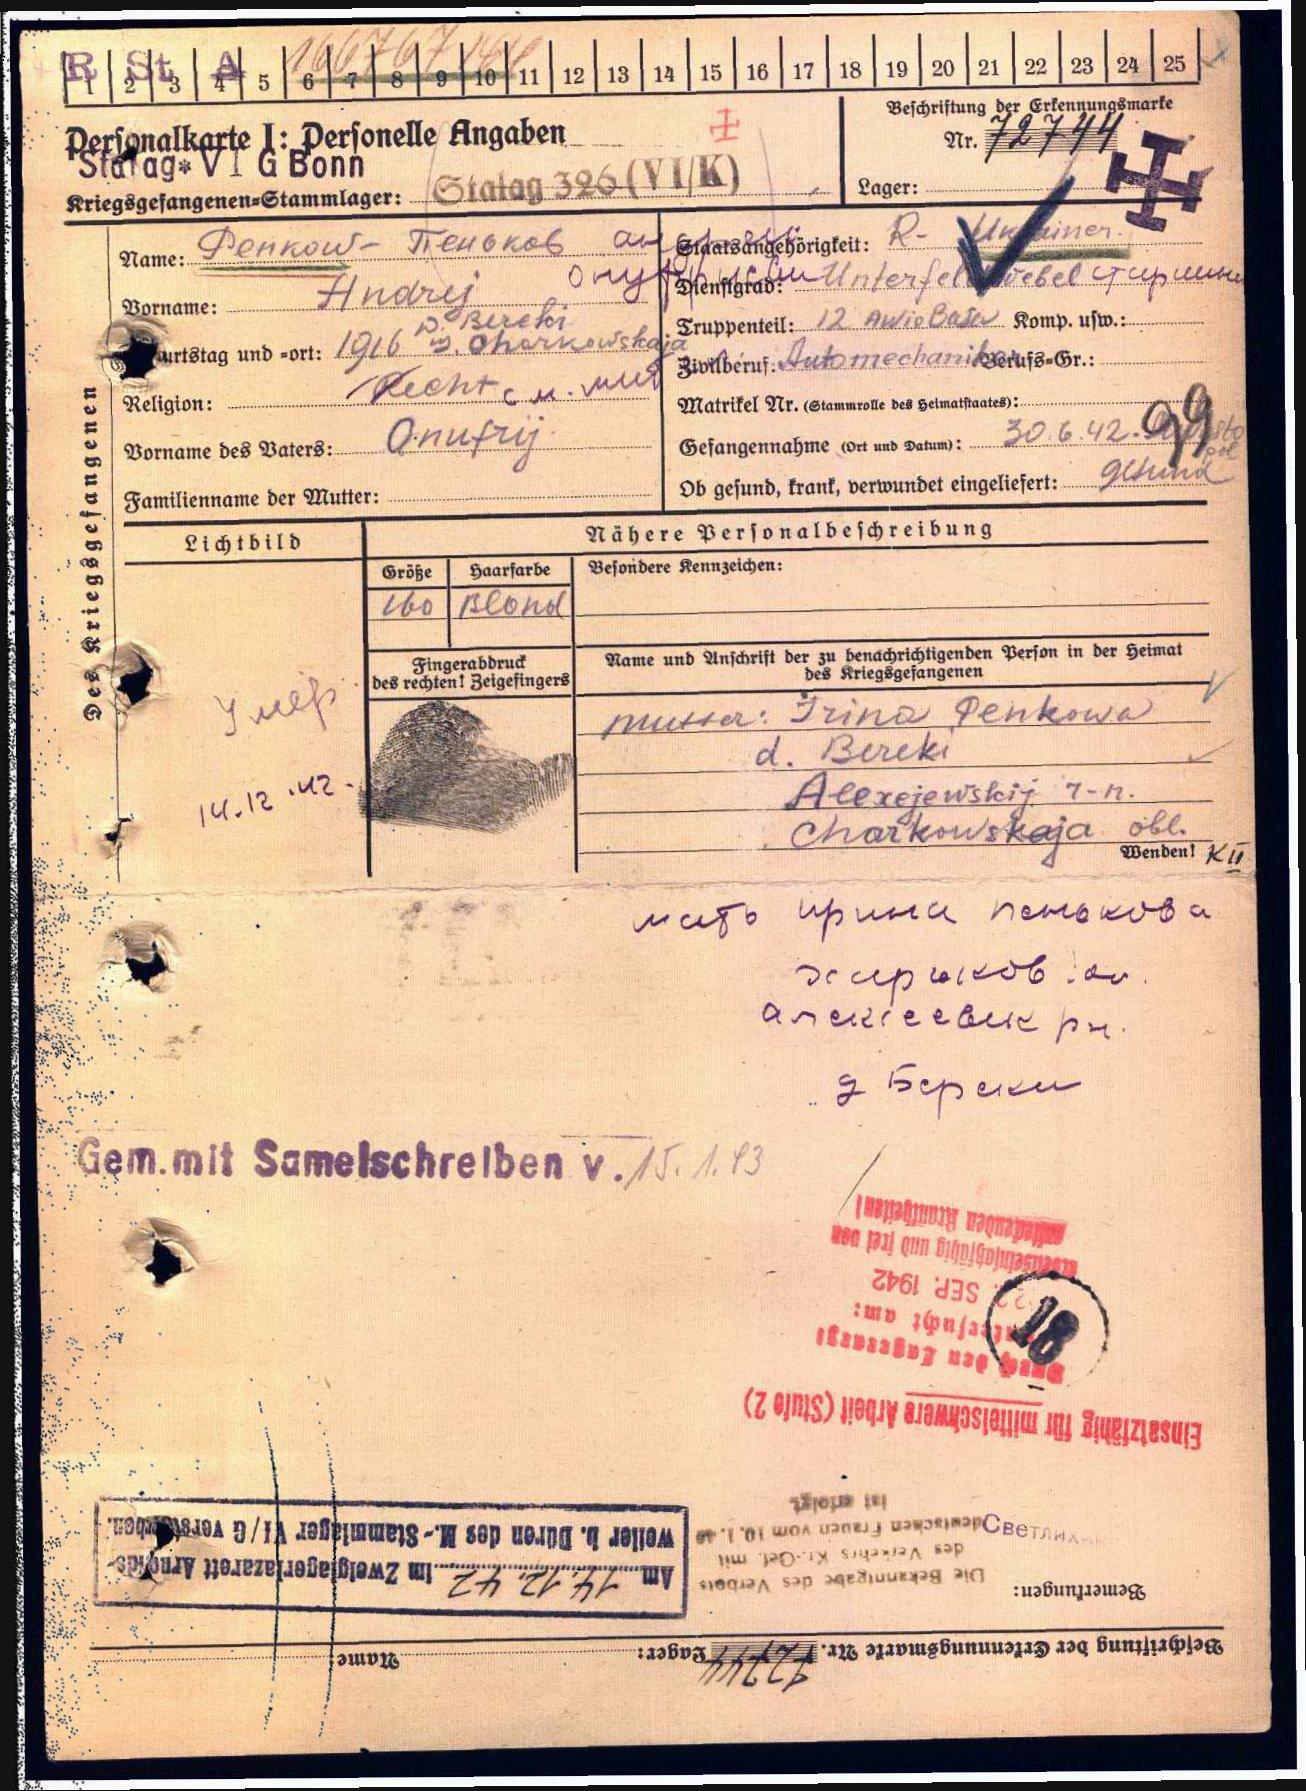 R St A
1 2 3 4 5 6 7 8 9 10 11 12 13 14 15 16 17 18 19 20 21 22 23 24 25
Personalkarte I: Personelle Angaben
Stalag VI G Bonn
Kriegsgefangenen-Stammlager: Stalag 326 (VI/K)
Beschriftung der Erkennungsmarke
Nr. 72744
Lager:
Des Kriegsgefangenen
Name: Penkow - Пеньков
Vorname: Andrej
Geburtstag und -ort: 1916 D. Bereki
Charkowskaja
Religion:
Vorname des Vaters: Onufrij
Familienname der Mutter:
Staatsangehörigkeit: R- Ukrainer
Dienstgrad: Unterfeldwebel старшина
Truppenteil: 12 AwioBasa Komp. usw.:
Zivilberuf: Automechaniker Berufs-Gr.:
Matrikel Nr. (Stammrolle des Heimatstaates):
99
Gefangennahme (Ort und Datum): 30.6.42.
Ob gesund, krank, verwundet eingeliefert: gesund
Lichtbild
Nähere Personalbeschreibung
Größe Haarfarbe Besondere Kennzeichen:
160 Blond
Fingerabdruck
des rechten! Zeigefingers
Name und Anschrift der zu benachrichtigenden Person in der Heimat
des Kriegsgefangenen
Умер
14.12.42.
Mutter: Irina Penkowa
d. Bereki
Alexejewskij r-n.
Charkowskaja obl.
Wenden! K II
мать ирина пенькова
харьков. об.
алексеевск рн.
д Береки
Gem. mit Samelschreiben v. 15.1.43
ansteckenden Krankheiten!
arbeitseinsatzfähig und frei von
SEP. 1942
Untersucht am:
Durch den Lagerarzt
18
Einsatzfähig für mittelschwere Arbeit (Stufe 2)
Am 14.12.42 im Zweiglagerlazarett Arnolds-
weiler b. Düren des M.-Stammlager VI/G verstorben.
Die Bekanntgabe des Verbots
des Verkehrs Kr.-Gef. mit
deutschen Frauen vom 10.1.40
ist erfolgt.
Светлих
Bemerkungen:
Beschriftung der Erkennungsmarke Nr. 72744 Lager: Name: